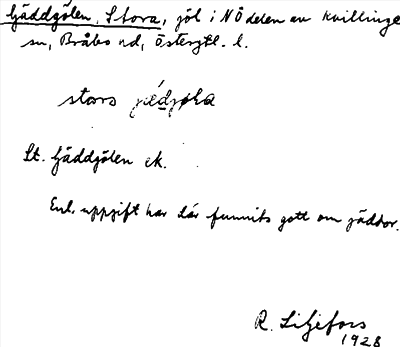 Gäddgölen, Stora, göl i NÖ delen av Kvillinge
sn, Bråbo hd, Östergtl. l.
stora
St. Gäddgölen ek.
Enl. uppgift har där funnits gott om gäddor.
R. Liljefors
1928